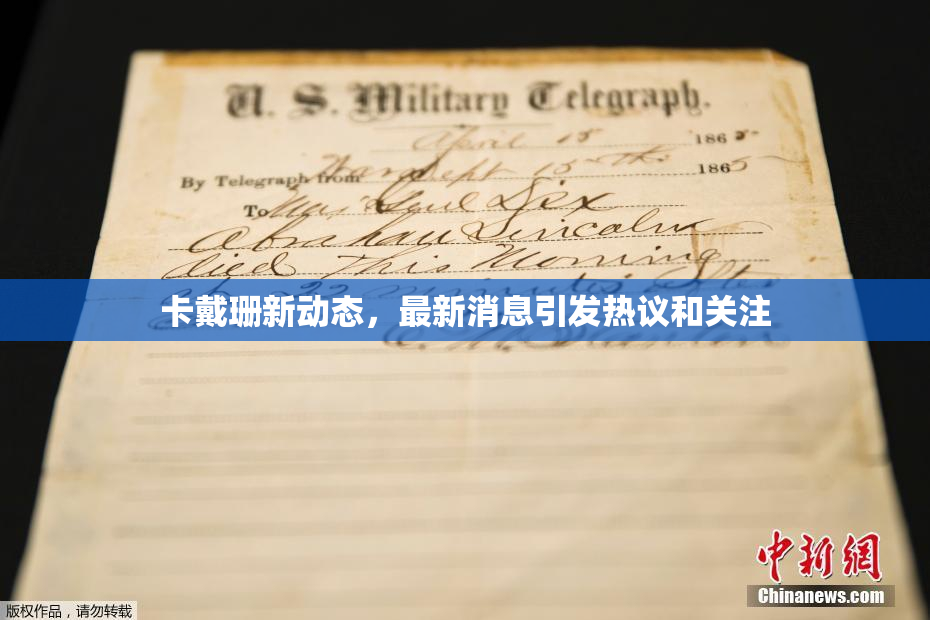 U. S. Military Telegraph.
April 15 1865
By Telegraph from War Dept 15th 1865
To Maj Genl Dix
Abraham Lincoln
died This Morning
at 22 minutes after
卡戴珊新动态，最新消息引发热议和关注
E. M. Stanton
中新网
Chinanews.com
版权作品，请勿转载